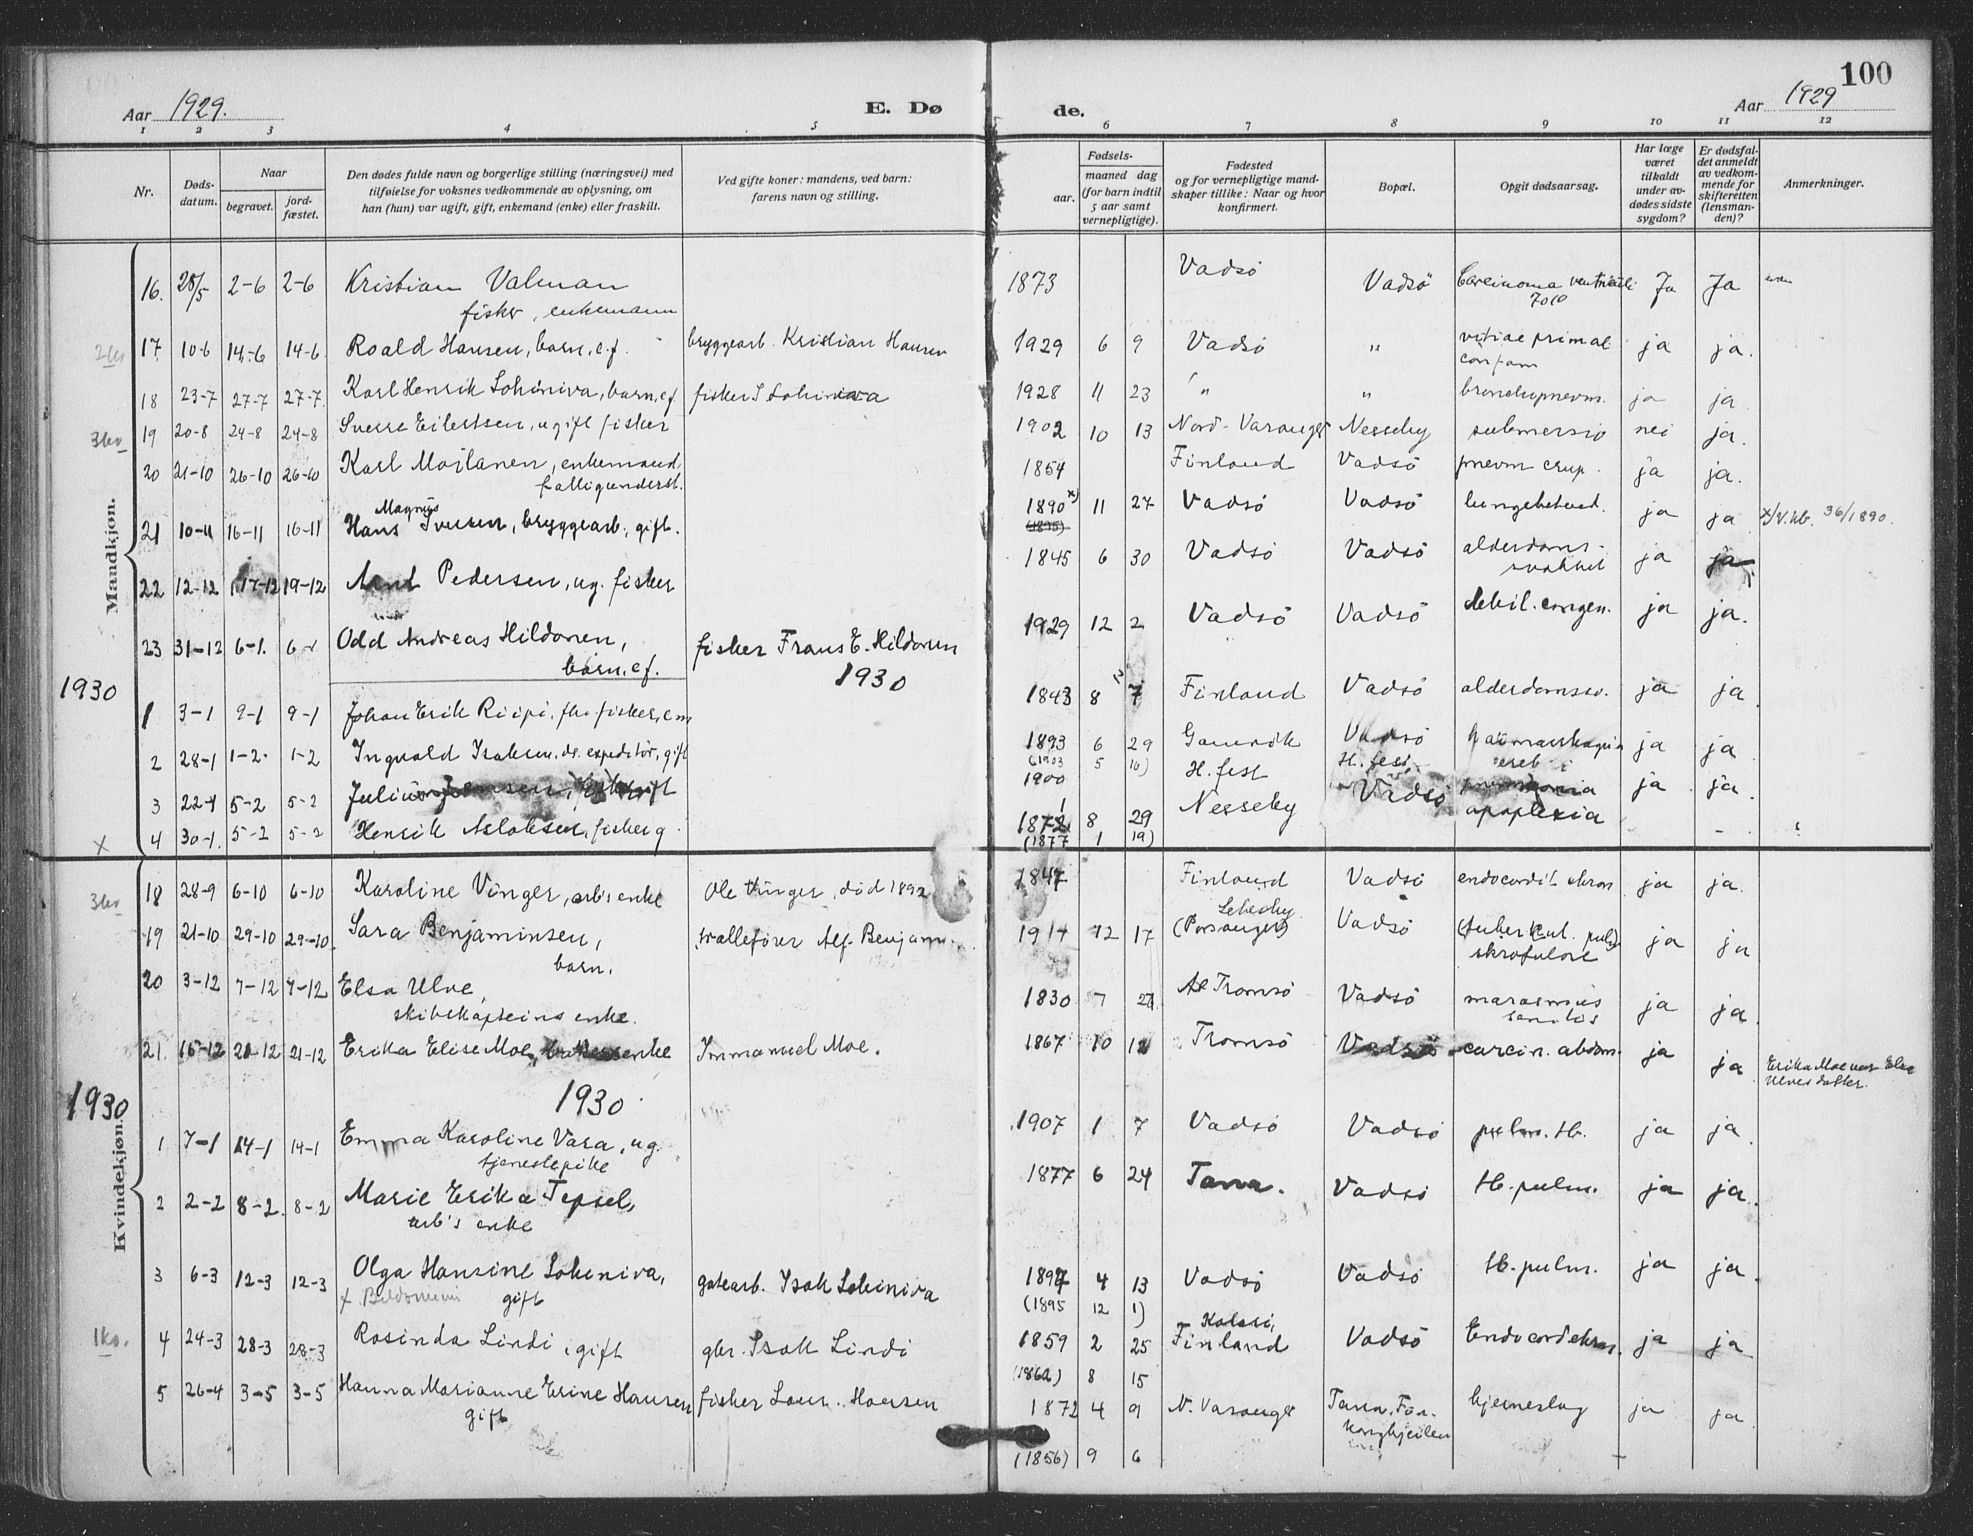 100
Aar 1929.
E. Dø
de.
Aar 1929
1 2 3 4 5 6 7 8 9 10 11 12
Nr.
Døds-
datum.
Naar
begravet.
jord-
fæstet.
Den dødes fulde navn og borgerlige stilling (næringsvei) med
tilføielse for voksnes vedkommende av oplysning, om
han (hun) var ugift, gift, enkemand (enke) eller fraskilt.
Ved gifte koner: mandens, ved barn:
farens navn og stilling.
Fødsels-
aar.
maaned dag
(for barn indtil
5 aar samt
vernepligtige).
Fødested
og for vernepligtige mand-
skaper tillike: Naar og hvor
konfirmert.
Bopæl.
Opgit dødsaarsag.
Har læge
været
tilkaldt
under av-
dødes sidste
sygdom?
Er dødsfal-
det anmeldt
av vedkom-
mende for
skifteretten
(lensman-
den)?
Anmerkninger.
Mandkjøn.
16. 28/5 2-6 2-6 Kristian Valman 1873 Vadsö Vadsö Carcinoma ventriculi Ja Ja
fisker, enkemann
17 10-6 14-6 14-6 Roald Hansen, barn, e.f. bryggearb. Kristian Hansen 1929 6 9 Vadsö " vitiae primae ja ja.
18 23-7 27-7 27-7 Karl Henrik Lohiniva, barn, ef fisker I Lohiniva 1928 11 23 " " bronchopnevm. ja ja
19 20-8 24-8 24-8 Sverre Eilertsen, ugift fisker 1902 10 13 Nord-Varanger Nesseby submersio nei ja.
20 21-10 26-10 26-10 Karl Moilanen, enkemand 1854 Finland Vadsö pnevm crup. ja ja.
fattigunderst.
Magnus
21 10-11 16-11 16-11 Hans Iversen, bryggearb., gift. 1890 x) 11 27 Vadsö Vadsö lungebetend. ja ja x/V. kb. 36/1890.
(1895)
22 12-12 17-12 19-12 Arnt Pedersen, ug. fisker 1845 6 30 Vadsö Vadsö alderdoms- ja ja
svakhet
23 31-12 6-1. 6-1 Odd Andreas Hildonen, fisker Frans E. Hildonen 1929 12 2 Vadsö Vadsö debil. congen. ja ja.
barn. ef.
1930
1930
1 3-1 9-1 9-1 Johan Erik Riipi, fhv. fisker, em 1843 8 7 Finland Vadsö alderdomssv. ja ja
2 28-1 1-2 1-2 Ingvald Isaksen, ds. expeditör, gift 1893 6 29 Gamvik Vadsö haemorrhagia ja ja
(1903 5 16) H.fest H.fest
3 22-1 5-2 5-2 Julius gift 1900 ja ja.
x 4 30-1. 5-2 5-2 Henrik Aslaksen, fisker g. 1872 8 29 Nesseby Vadsö apoplexia
(1877 1 19)
Kvindekjøn.
18 28-9 6-10 6-10 Karoline Vinger, arb's enke Ole Vinger, död 1892 1847 Finland Vadsö endocardit. chron ja ja.
Lebesby
19 21-10 29-10 29-10. Sara Benjaminsen, Alf. Benjamin. 1914 12 17 (Porsanger) Vadsö (tuberkul. pulm) ja ja
barn. skrofulose
20 3-12 7-12 7-12 Elsa Ulve, 1830 7 Tromsö Vadsö marasmus ja ja
skibskapteins enke. senilis
21. 15-12 21-12 21-12 Erika Elise Moe, enke Immanuel Moe. 1867 10 12 Tromsö Vadsö carcin. abdom. ja ja Erika Moe var Elsa
Ulves datter.
1930
1930
1 7-1 14-1 14-1 Emma Karoline Vara, ug. 1907 1 7 Vadsö Vadsö pulm. tb. ja ja
tjenestepike
2 2-2 8-2. 8-2 Marie Erika Tepsel, 1877 6 24 Tana. Vadsö tb. pulm. ja ja.
arb's enke
3 6-3 12-3 12-3 Olga Hansine Lohiniva, gatearb. Isak Lohiniva 1897 4 13 Vadsö Vadsö tb. pulm. ja ja.
gift (1895 12 1)
4 24-3 28-3 28-3 Rosinda Lindi, gift gbr. Isak Lindi 1859 2 25 Finland Vadsö Endocard chron. ja ja
(1862) 8 15
5 26-4 3-5 3-5 Hanna Marianne Erine Hansen fisker Laur. Hansen 1872 4 9 N. Varanger Tana. hjerneslag ja ja
gift
(1856) 9 6